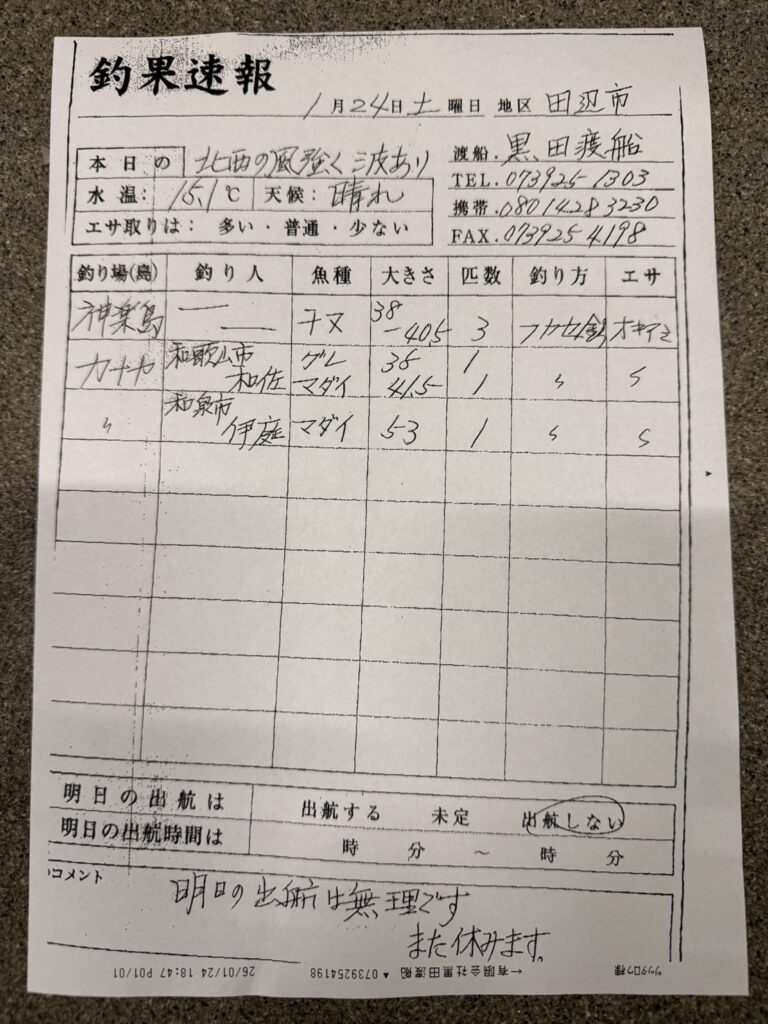 釣果速報
1月24日土曜日 地区 田辺市
本日の 北西の風強く波あり
水温: 15.1℃ 天候: 晴れ
エサ取りは: 多い・普通・少ない
渡船. 黒田渡船
TEL. 073925 1303
携帯. 080 1428 3230
FAX. 073925 4198
釣り場(島) 釣り人 魚種 大きさ 匹数 釣り方 エサ
神楽島 一 一 チヌ 38-40.5 3 フカセ釣 オキアミ
カナヤ 和歌山市 和佐 グレ 38 1
マダイ 41.5 1 〃 〃
〃 和泉市 伊庭 マダイ 53 1 〃 〃
明日の出航は 出航する 未定 出航しない
明日の出航時間は 時 分 ~ 時 分
コメント
明日の出航は無理です
また休みます。
26/01/24 18:47 P01/01 ▲ 0739254198 ←有限会社黒田渡船